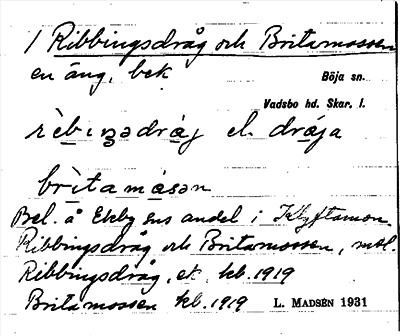 1 Ribbingsdråg och Britamossen
en äng, bek
Böja sn.
Vadsbo hd. Skar. l.
rèbiŋədràg el. dràga
brìtamåsən
Bel. å Ekby ens andel i Klyftamon.
Ribbingsdråg och Britamossen,
Ribbingsdråg, et kb. 1919
Britamossen kb. 1919 L. MADSÉN 1931